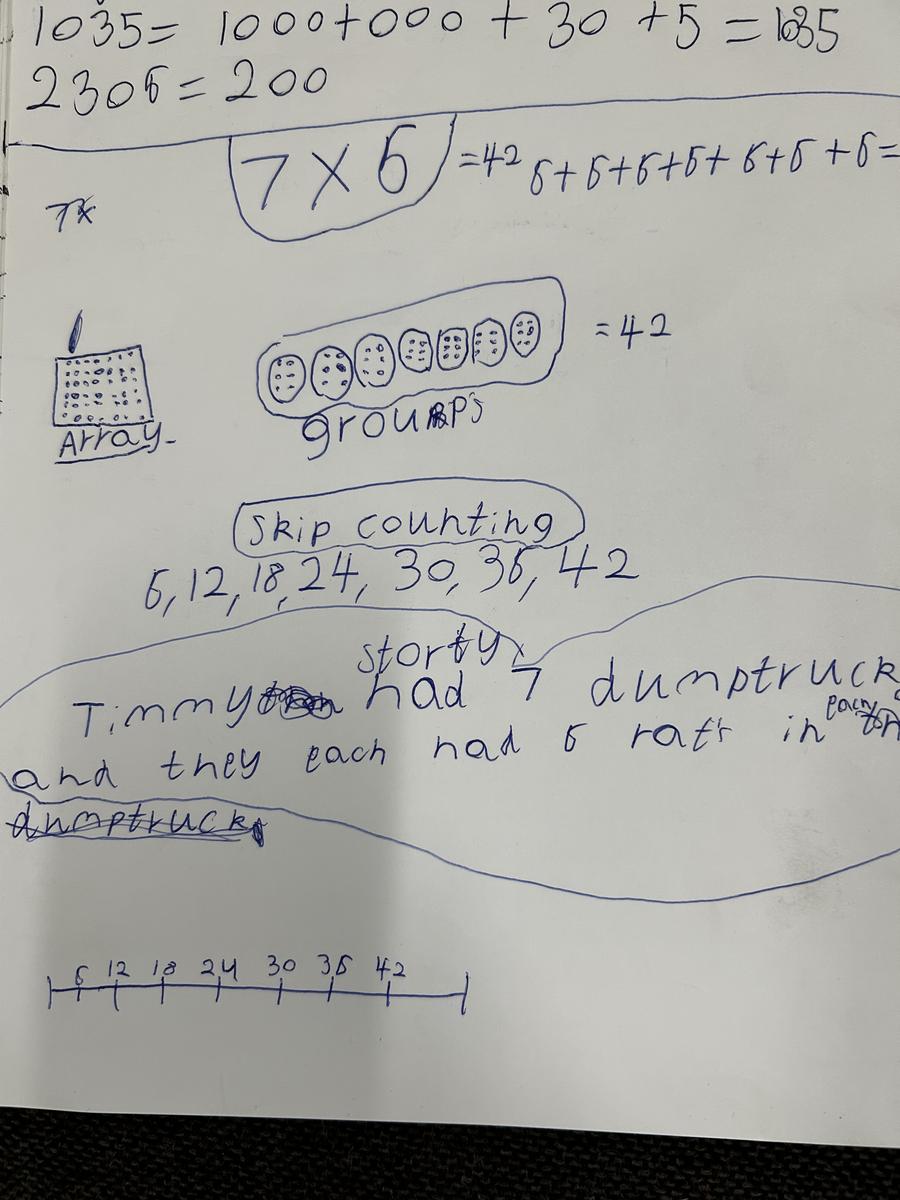 1035= 1000+000 + 30 +5 = 1035
2306 = 200
7 X 6 =42 6+6+6+6+ 6+6 +6=
7x
= 42
Array groups
Skip counting
6, 12, 18, 24, 30, 36, 42
story
Timmy had 7 dumptruck
and they each had 6 rats in each
dumptruck
6 12 18 24 30 36 42